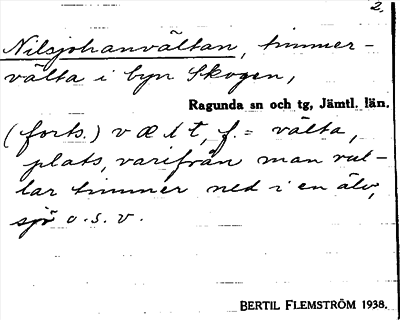 2.
Nilsjohanvältan, timmer-
välta i byn Skogen,
Ragunda sn och tg, Jämtl. län.
(forts.) vælt, f. = välta,
plats, varifrån man rul-
lar timmer ned i en älv,
sjö o.s.v.
BERTIL FLEMSTRÖM 1938.